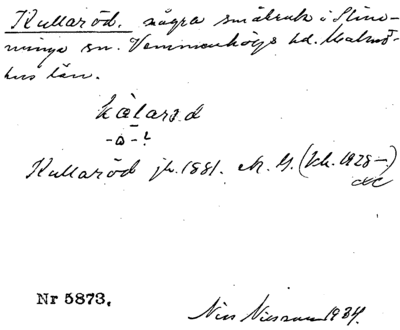 Kullaröd. några småbruk i Slim-
minge sn. Vemmenhögs hd. Malmö-
hus län.
kølarød
-ø-?
Kullaröd jb. 1881. M. G. (Kk. 1928-.)
Nr 5873.
Nils Nilsson 1934.